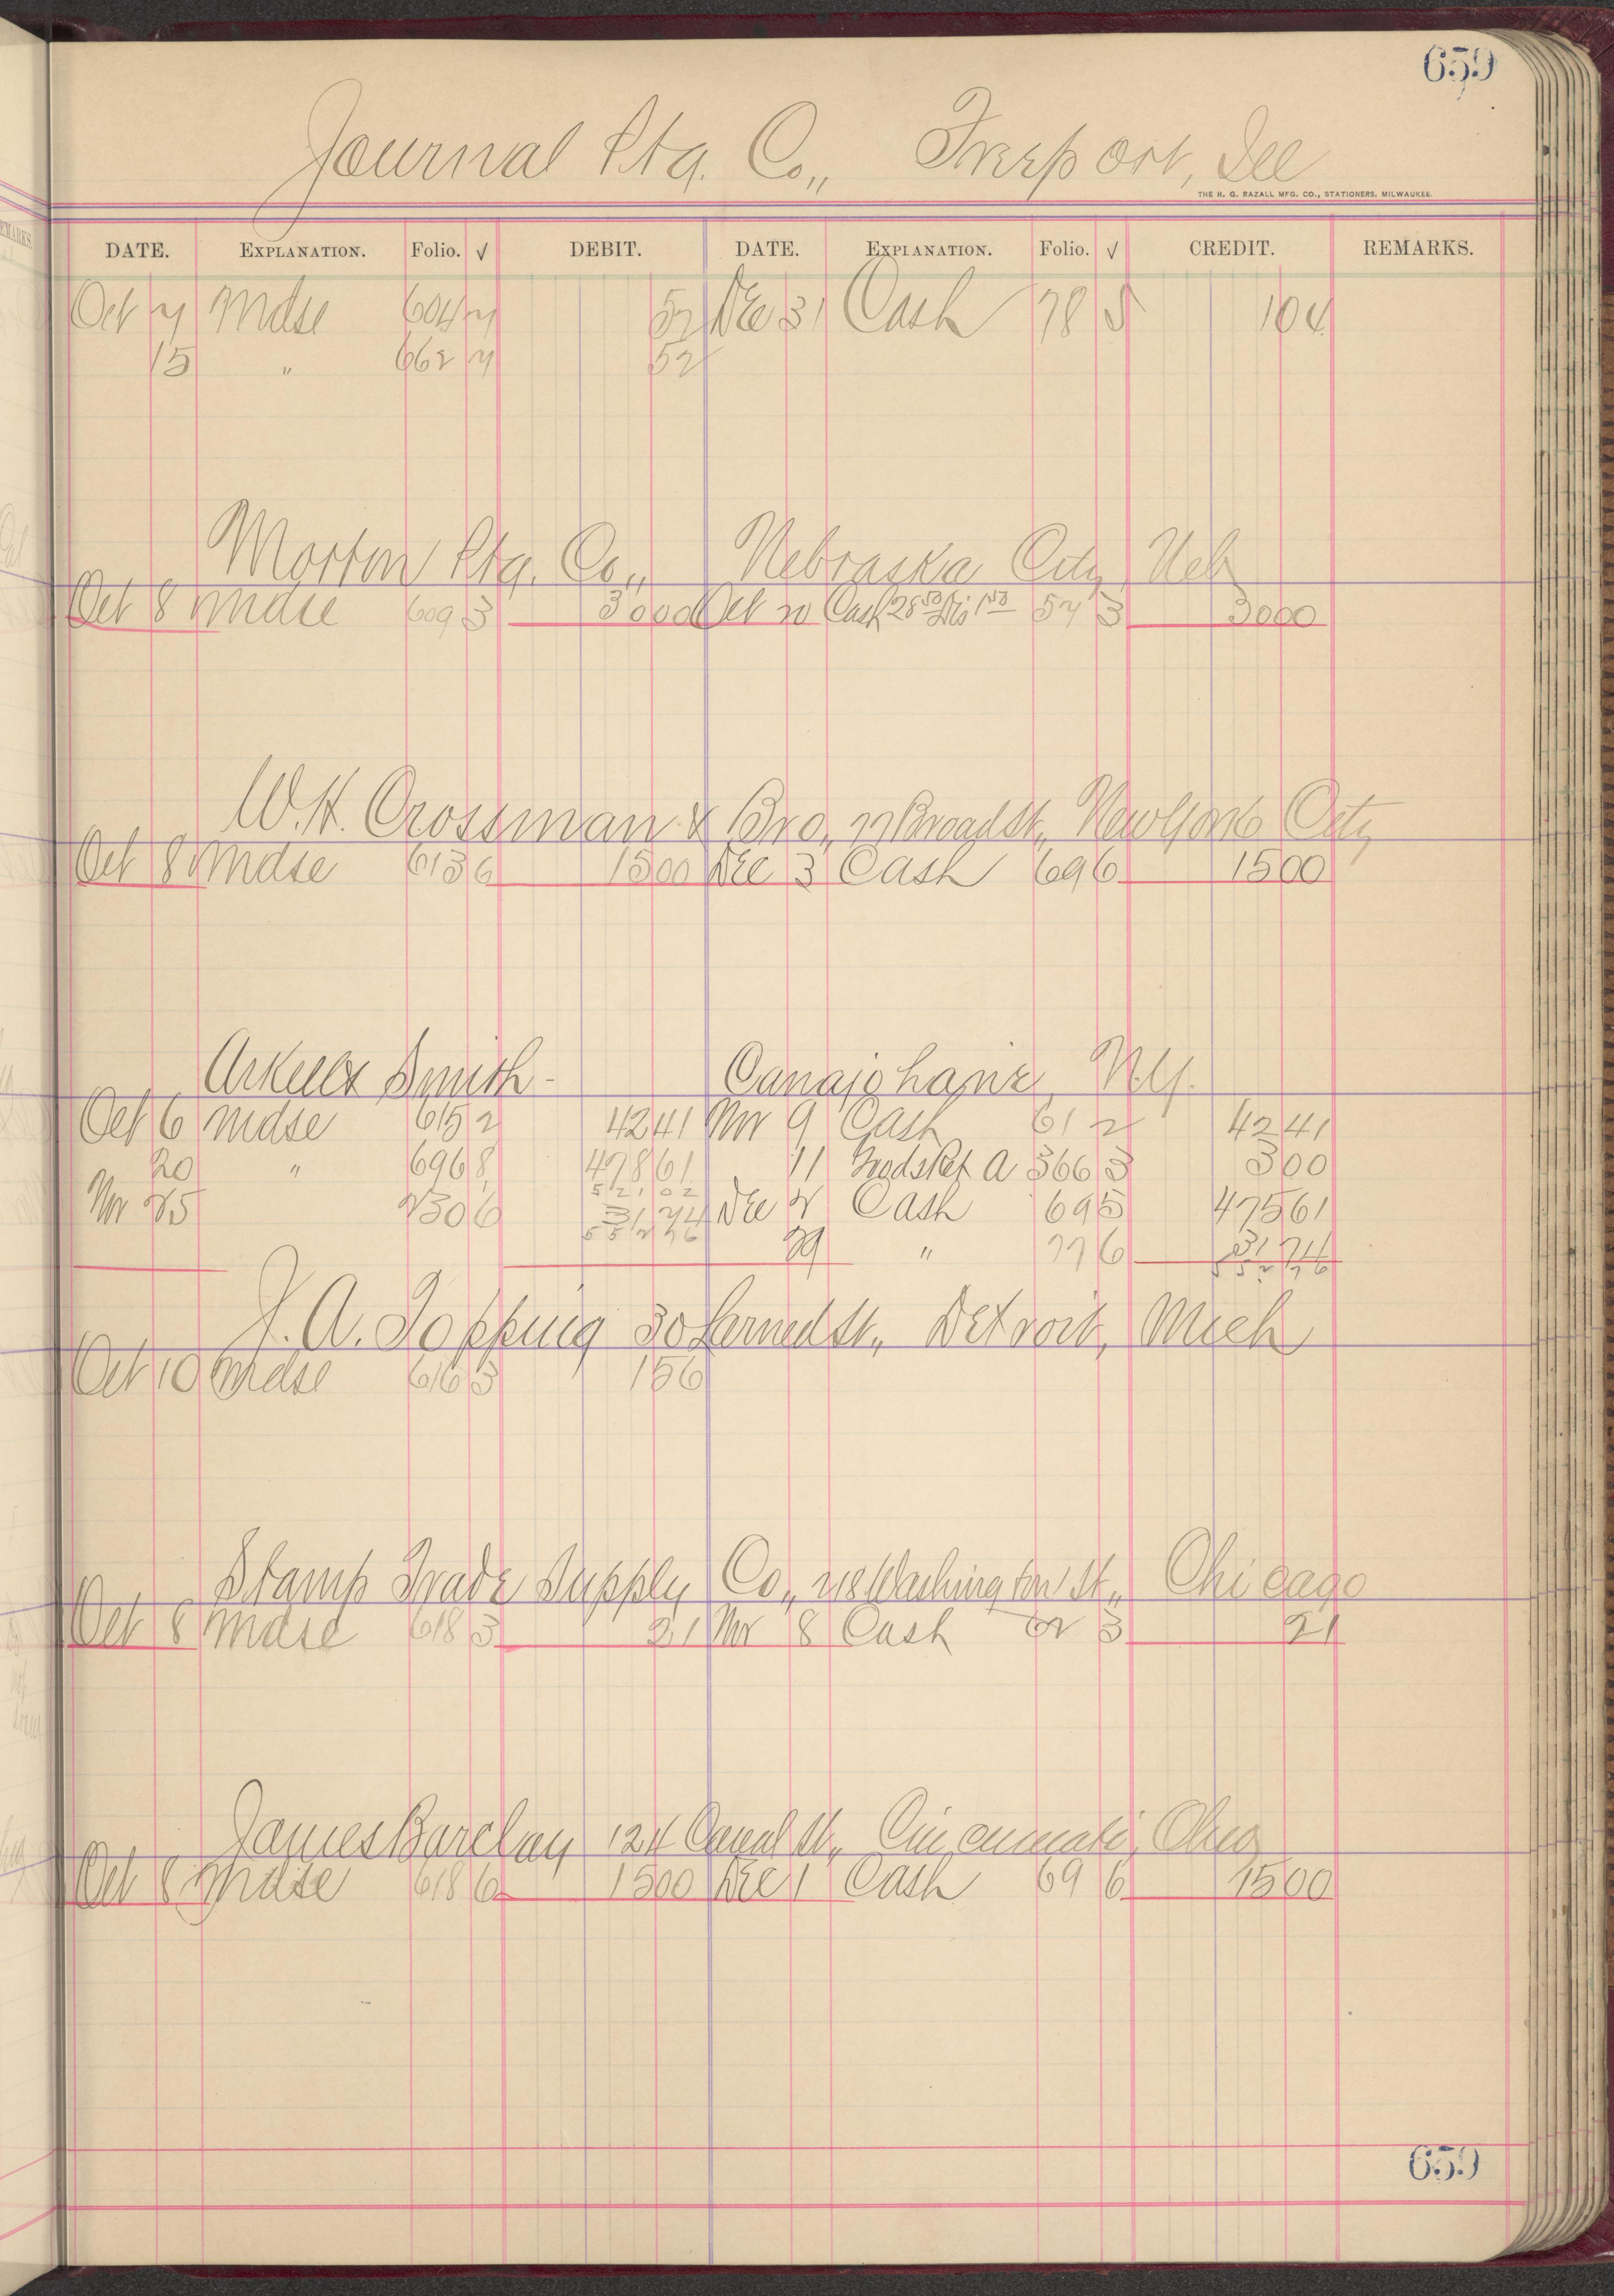 659
Journal Ptg. Co., Freeport, Ill
THE H. G. RAZALL MFG. CO., STATIONERS, MILWAUKEE.
DATE. EXPLANATION. Folio. √ DEBIT. DATE. EXPLANATION. Folio. √ CREDIT. REMARKS.
Oct 7 Mdse 604 7 52 Dec 31 Cash 78 5 104
15 " 662 7 52
Morton Ptg. Co., Nebraska City, Neb
Oct 8 Mdse 609 3 3000 Oct 20 Cash 28 50 Dis 1 50 57 3 3000
W. H. Crossman & Bro., 77 Broad St., New York City
Oct 8 Mdse 613 6 1500 Dec 3 Cash 69 6 1500
Arkell & Smith - Canajoharie, N.Y.
Oct 6 Mdse 615 2 4241 Nov 9 Cash 61 2 4241
20 " 696 8 47861 11 Mdse Ret A 366 3 300
52102
Nov 25 230 6 3174 Dec 2 Cash 69 5 47561
55276
29 " 77 6 3174
55276
J. A. Topping 30 Larned St., Detroit, Mich
Oct 10 Mdse 616 3 156
Stamp Trade Supply Co., 218 Washington St., Chicago
Oct 8 Mdse 618 3 21 Nov 8 Cash 62 3 21
James Barclay 124 Canal St., Cincinnati, Ohio
Oct 8 Mdse 618 6 1500 Dec 1 Cash 69 6 1500
659